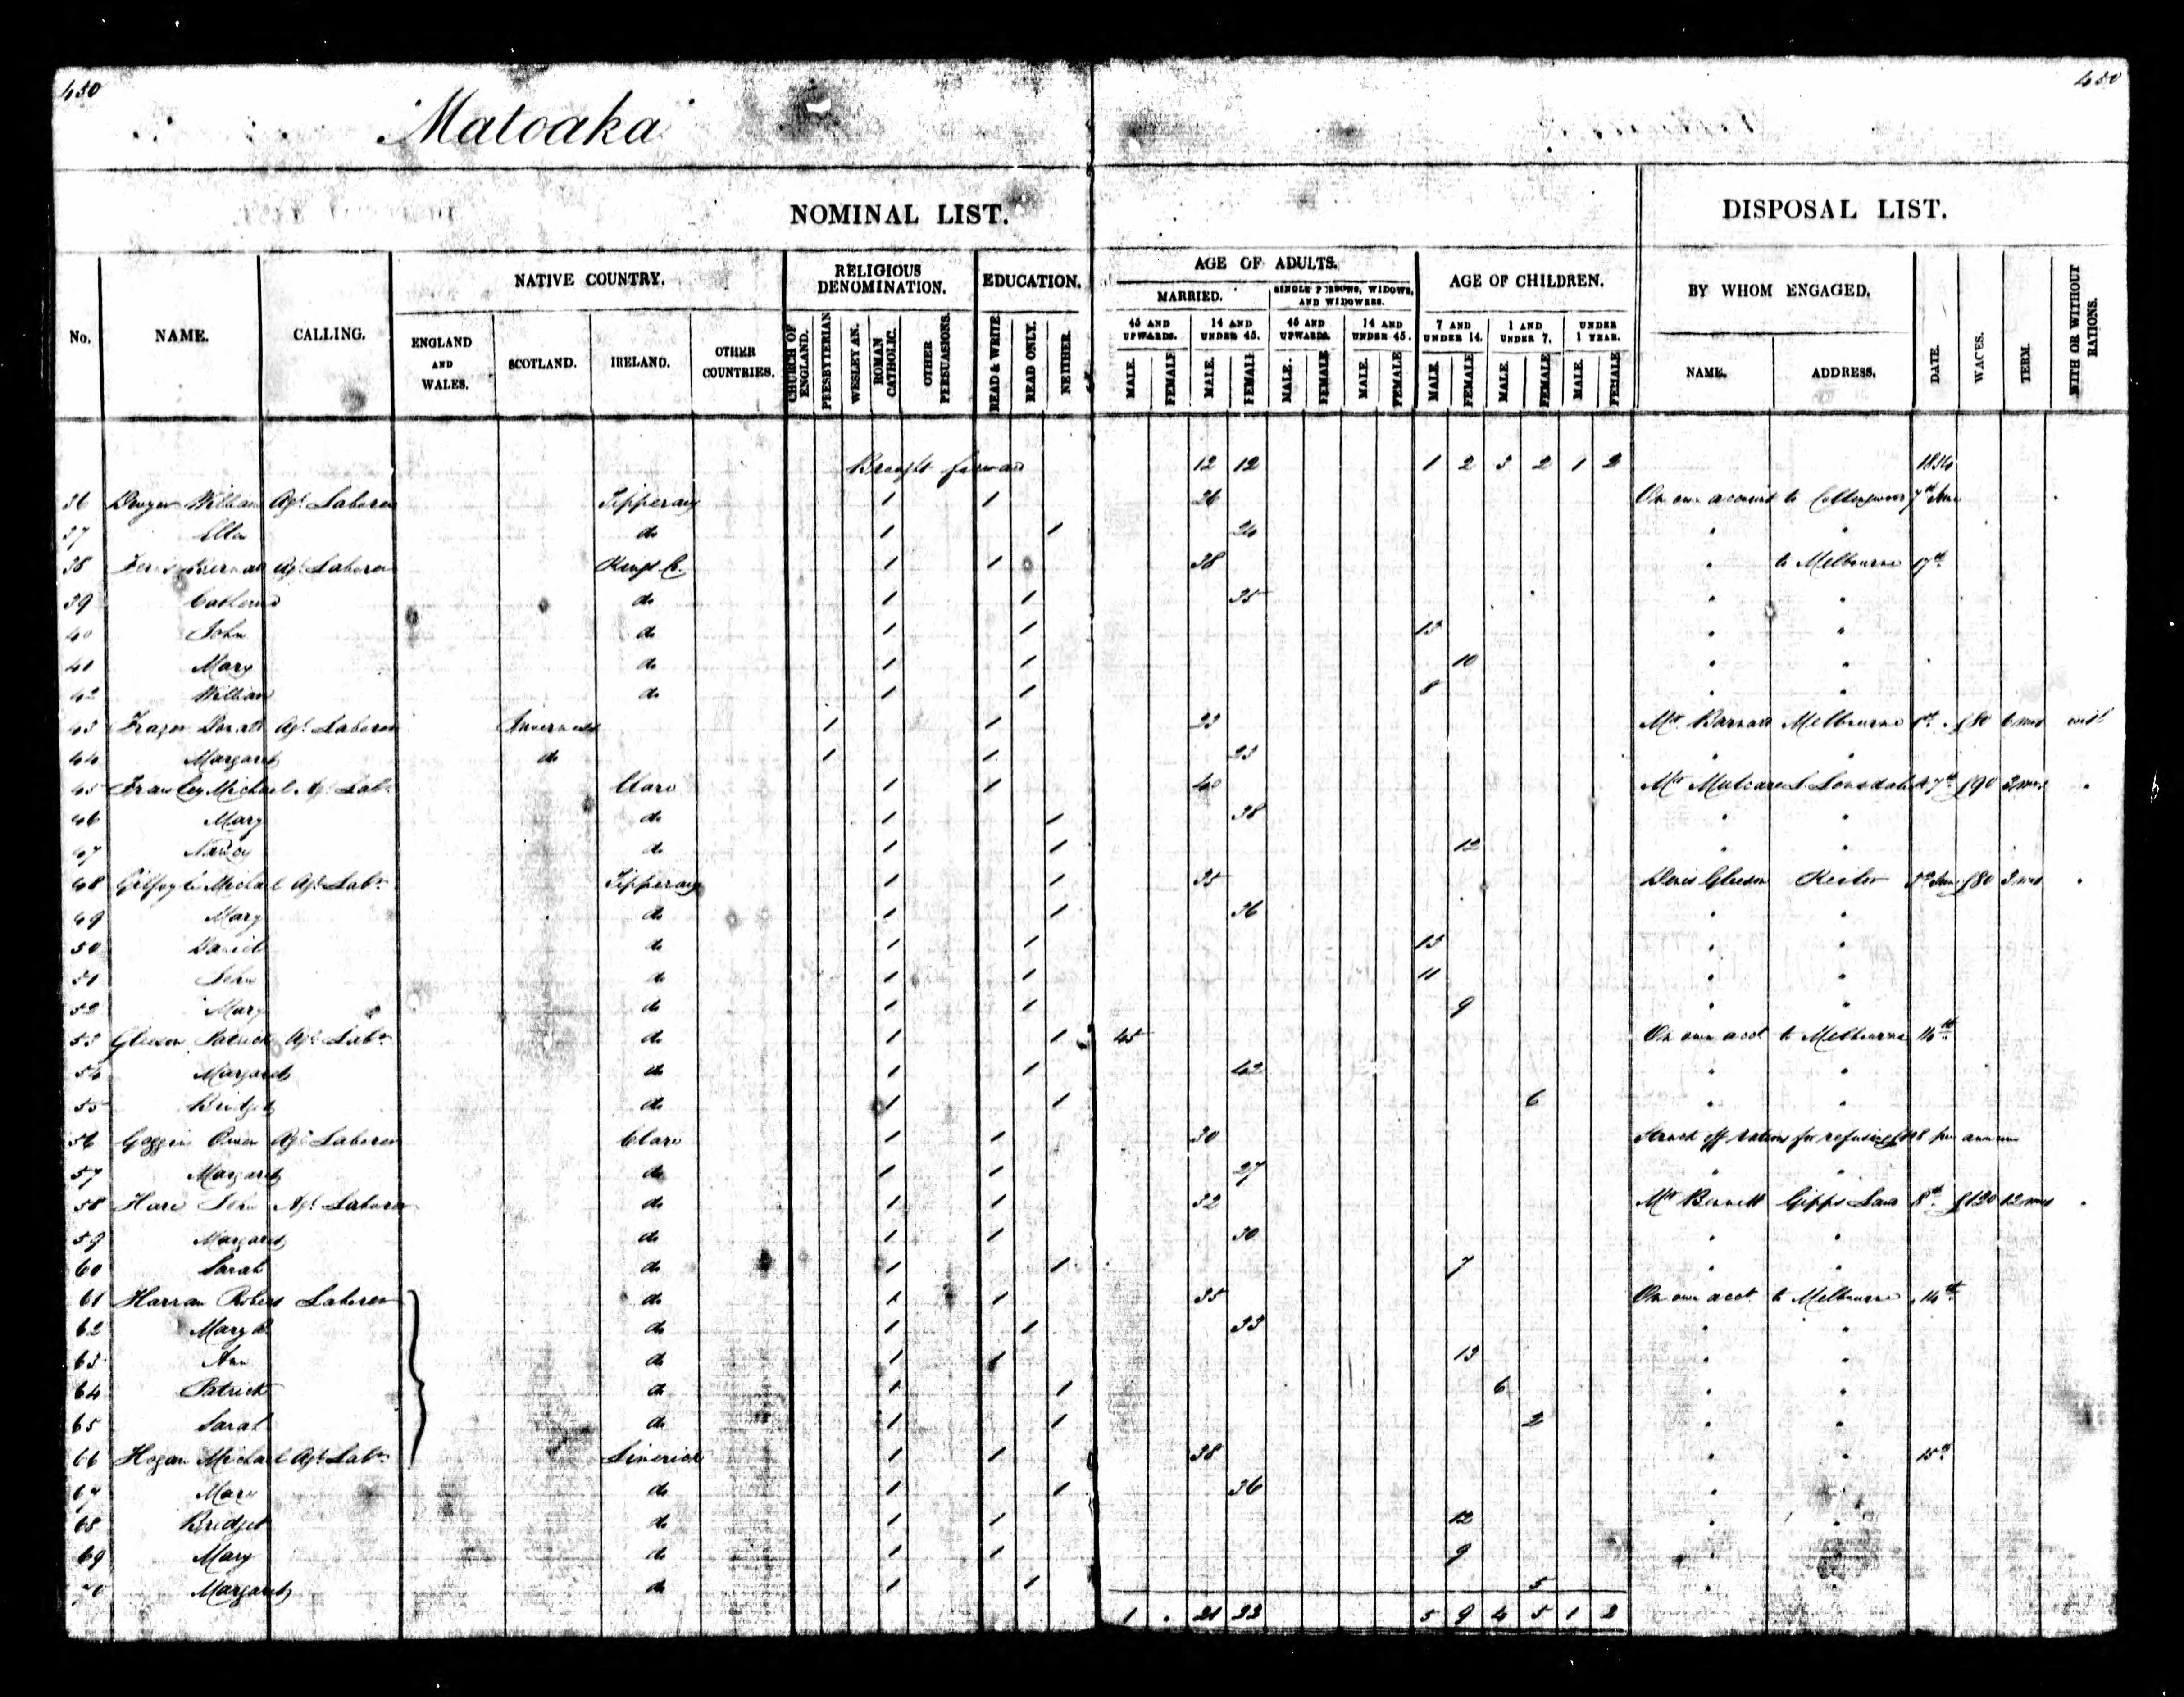 450 450
Matoaka
NOMINAL LIST. DISPOSAL LIST.
No. NAME. CALLING. NATIVE COUNTRY. RELIGIOUS DENOMINATION. EDUCATION. AGE OF ADULTS. AGE OF CHILDREN. BY WHOM ENGAGED. DATE. WAGES. TERM. WITH OR WITHOUT RATIONS.
MARRIED. SINGLE PERSONS, WIDOWS, AND WIDOWERS.
ENGLAND AND WALES. SCOTLAND. IRELAND. OTHER COUNTRIES. CHURCH OF ENGLAND. PRESBYTERIAN WESLEYAN. ROMAN CATHOLIC. OTHER PERSUASIONS. READ & WRITE READ ONLY. NEITHER. 45 AND UPWARDS. 14 AND UNDER 45. 45 AND UPWARDS. 14 AND UNDER 45. 7 AND UNDER 14. 1 AND UNDER 7. UNDER 1 YEAR. NAME. ADDRESS.
MALE. FEMALE MALE. FEMALE MALE. FEMALE MALE. FEMALE MALE. FEMALE MALE. FEMALE MALE. FEMALE
Brought forward 12 12 1 2 3 2 1 2 1854
36 Dwyer William Agl. Laborer Tipperary 1 1 26 On own account to Collingwood 7th June
37 Ellen do 1 1 24 " "
38 Agl. Laborer Kings Co. 1 1 38 " to Melbourne 17th
39 Catherine do 1 1 35 " "
40 John do 1 1 13 " "
41 Mary do 1 1 10 " "
42 William do 1 1 8 " "
43 Frazer Donald Agl. Laborer Inverness 1 1 23 Mr. Barnard Melbourne £80 6 mos with
44 Margaret do 1 1 23 " "
45 Frawley Michael Agl. Labr. Clare 1 1 40 Mr Mulcare Lt Lonsdale St 7th £90 3 mos "
46 Mary do 1 1 38 " "
47 Nancy do 1 1 12 " "
48 Gilfoyle Michael Agl. Labr. Tipperary 1 1 35 Denis Gleeson Keilor £80 3 mos "
49 Mary do 1 1 36 " "
50 Daniel do 1 1 13 " "
51 John do 1 1 11 " "
52 Mary do 1 1 9 " "
53 Gleeson Patrick Agl. Labr. do 1 1 45 On own acct to Melbourne 14th
54 Margaret do 1 1 42 " "
55 Bridget do 1 1 6 " "
56 Goggin Owen Agl. Laborer Clare 1 1 30 Struck off rations for refusing per annum
57 Margaret do 1 1 27 " "
58 Hare John Agl. Laborer do 1 1 32 Mr Bennett Gipps Land 8th £120 12 mos "
59 Margaret do 1 1 30 " "
60 Sarah do 1 1 7 " "
61 Harran Robert Laborer do 1 1 35 On own acct. to Melbourne 14th
62 Mary A. do 1 1 33 " "
63 Ann do 1 1 13 " "
64 Patrick do 1 1 6 " "
65 Sarah do 1 1 2 " "
66 Hogan Michael Agl. Labr. Limerick 1 1 38 " " 15th
67 Mary do 1 1 36 " "
68 Bridget do 1 1 12 " "
69 Mary do 1 1 9 " "
70 Margaret do 1 1 5 " "
1 . 21 22 5 9 4 5 1 2